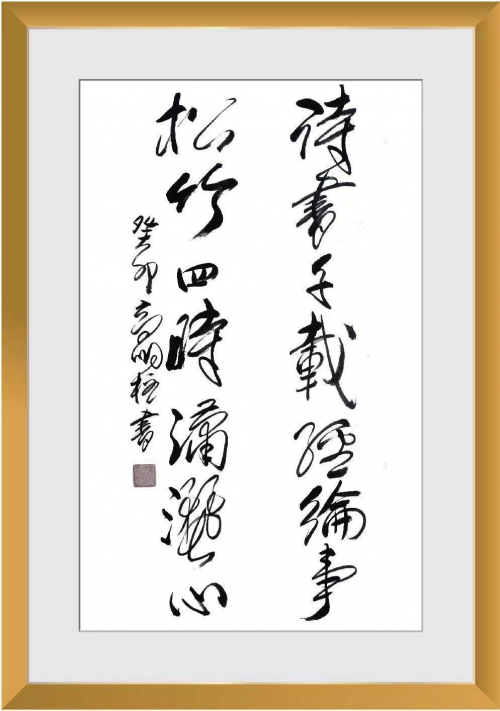 詩書千載經綸事
松竹四時瀟灑心
癸卯高明柱書